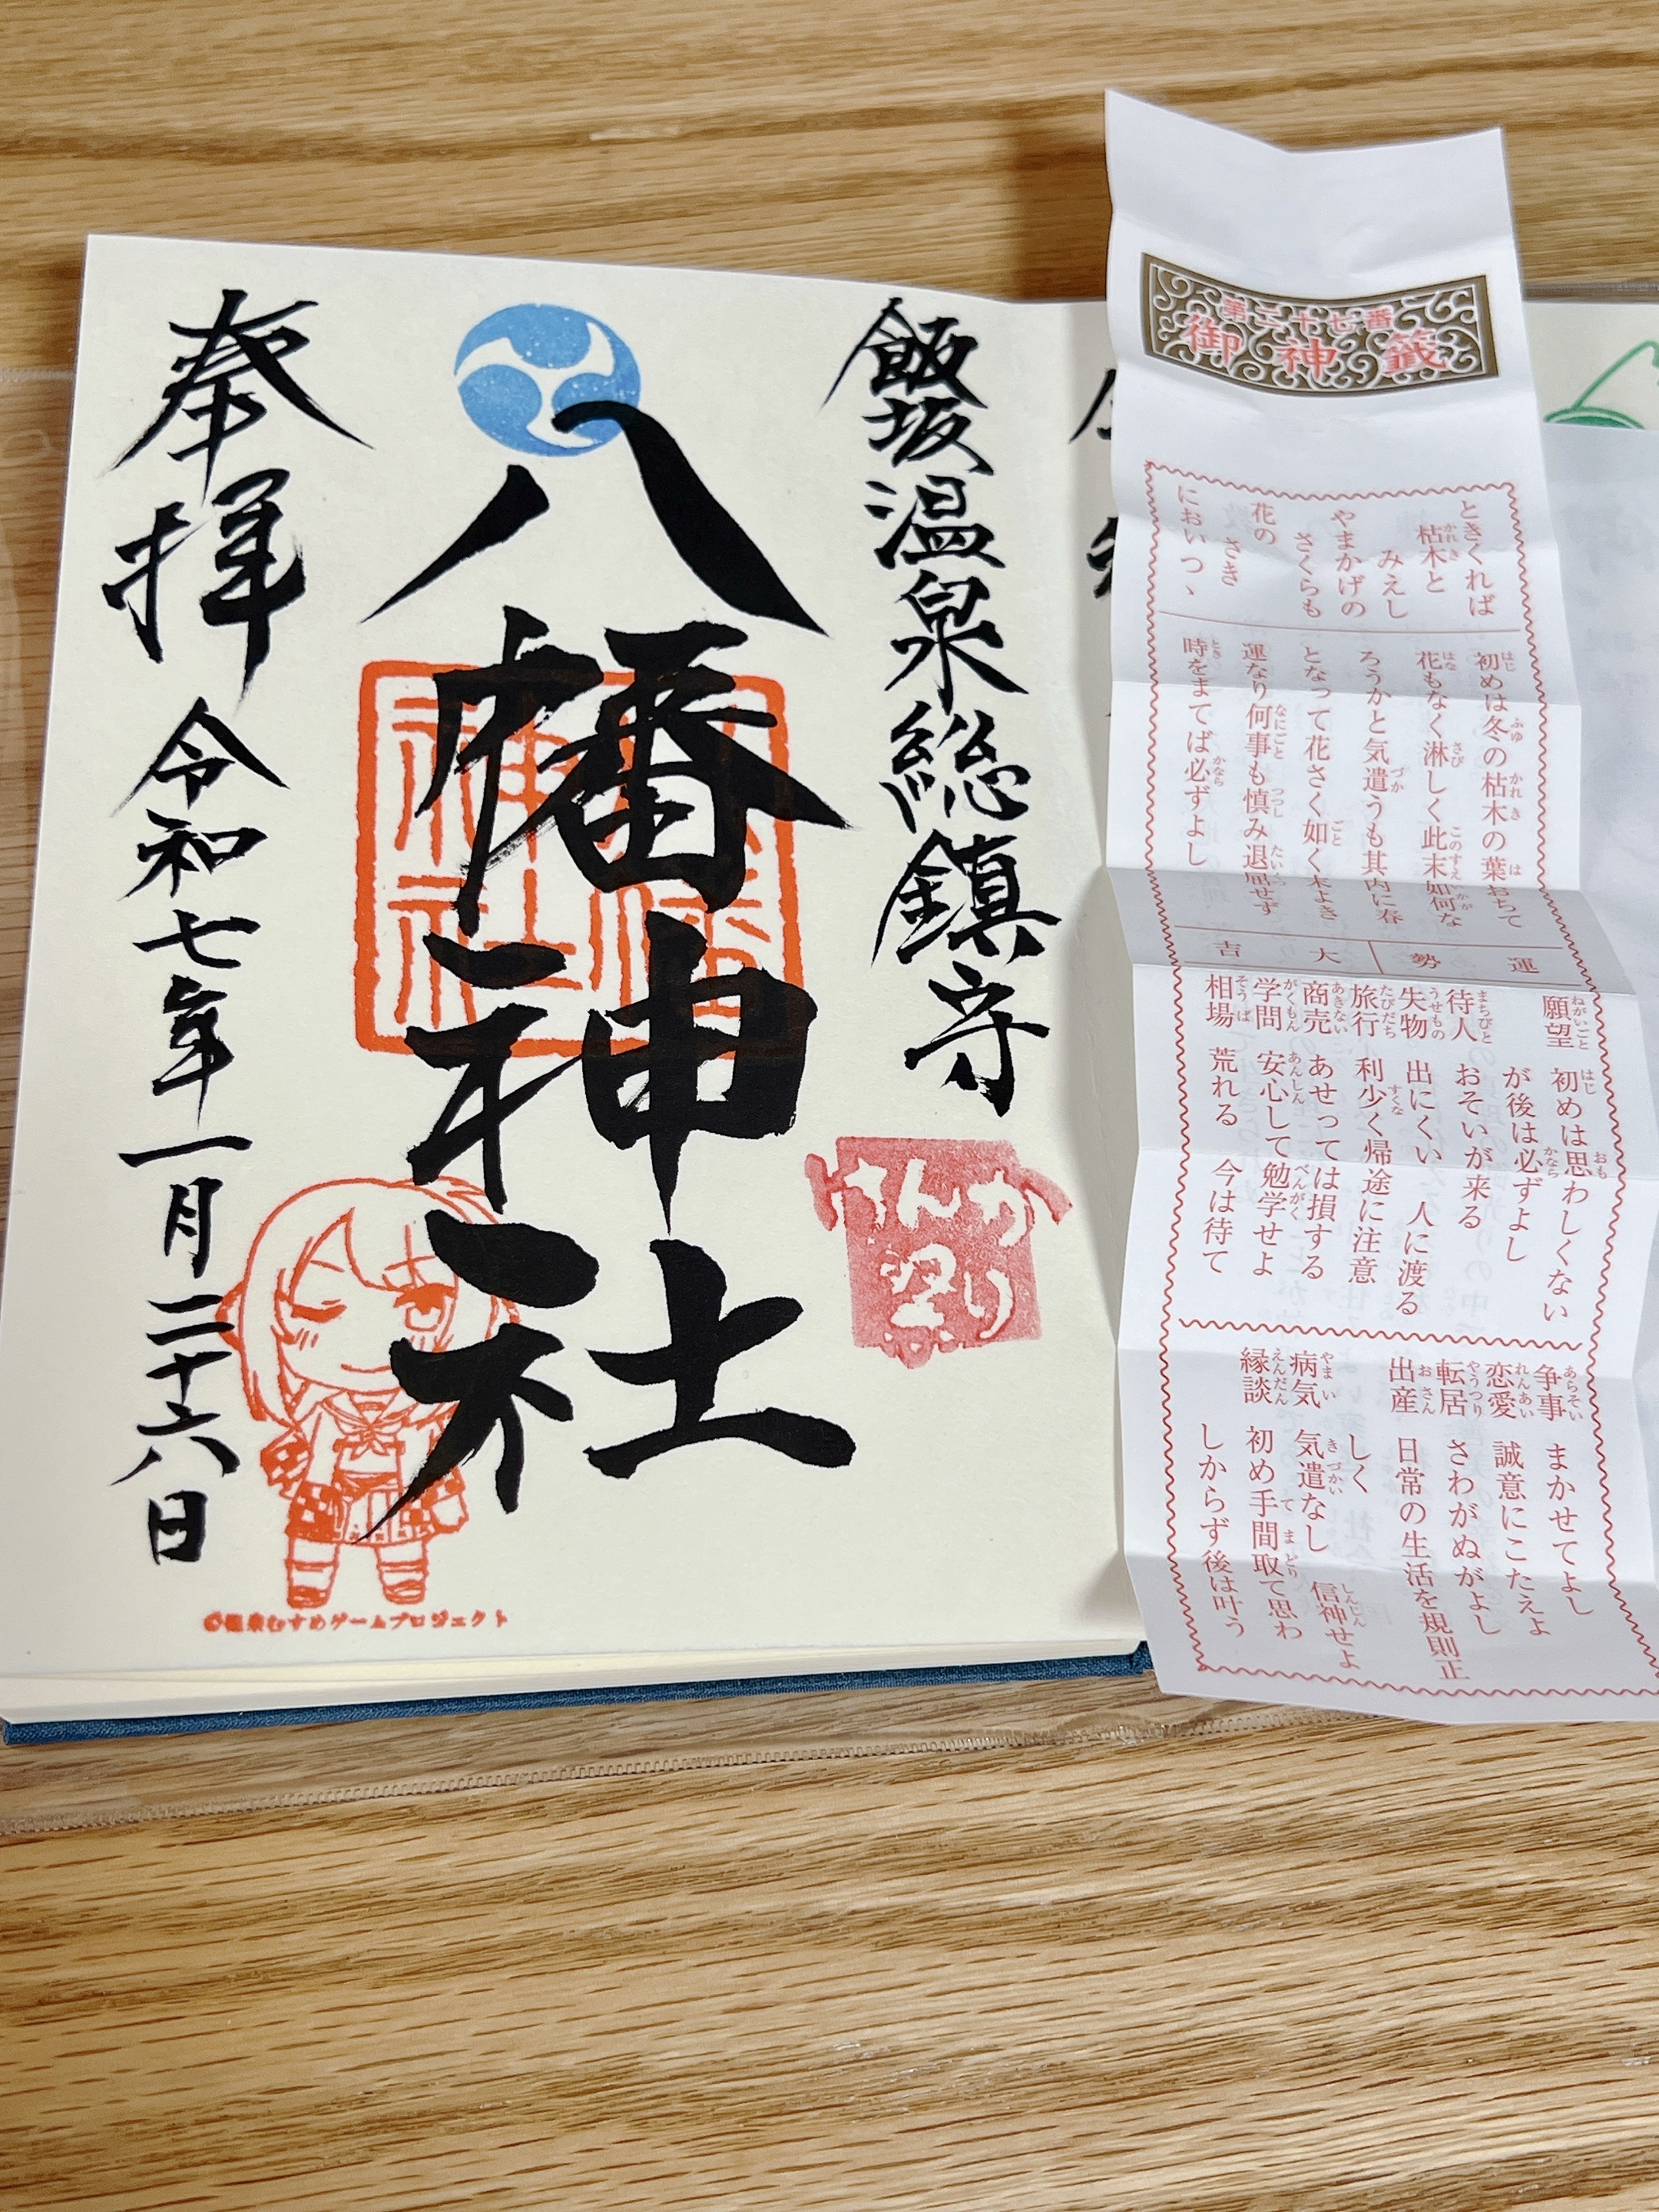 飯坂温泉総鎮守
八幡神社
奉拝
令和七年一月二十六日
けんか
祭り
©温泉むすめゲームプロジェクト
御神籤
ときくれば
枯木と
みえし
やまかげの
さくらも
花の
さき
においつゝ
初めは冬の枯木の葉おちて
花もなく淋しく此末如何な
ろうかと気遣うも其内に春
となって花さく如くよき
運なり何事も慎み退屈せず
時をまてば必ずよし
運勢 大吉
願望 初めは思わしくない
が後は必ずよし
待人 おそいが来る
失物 出にくい 人に渡る
旅行 利少く帰途に注意
商売 あせっては損する
学問 安心して勉学せよ
相場 荒れる 今は待て
争事 まかせてよし
恋愛 誠意にこたえよ
転居 さわがぬがよし
出産 日常の生活を規則正
しく 信神せよ
病気 気遣なし
縁談 初め手間取て思わ
しからず後は叶う